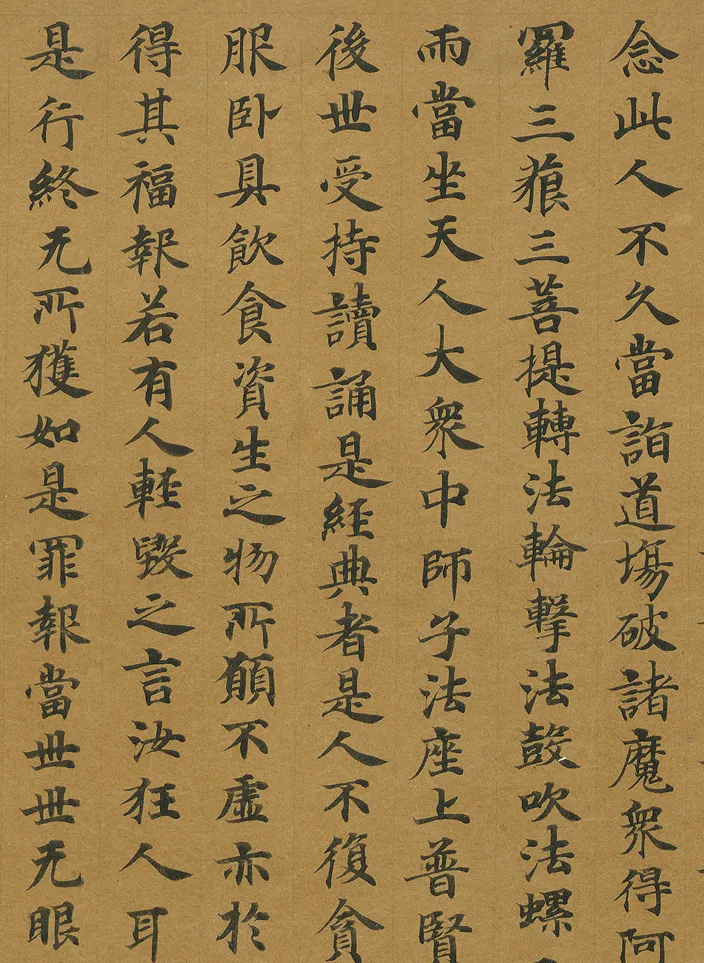 念此人不久當詣道塲破諸魔衆得阿
羅三藐三菩提轉法輪擊法鼓吹法螺
雨當坐天人大衆中師子法座上普賢
後世受持讀誦是經典者是人不復貪
服卧具飲食資生之物所願不虛亦於
得其福報若有人輕毀之言汝狂人耳
是行終无所獲如是罪報當世世无眼